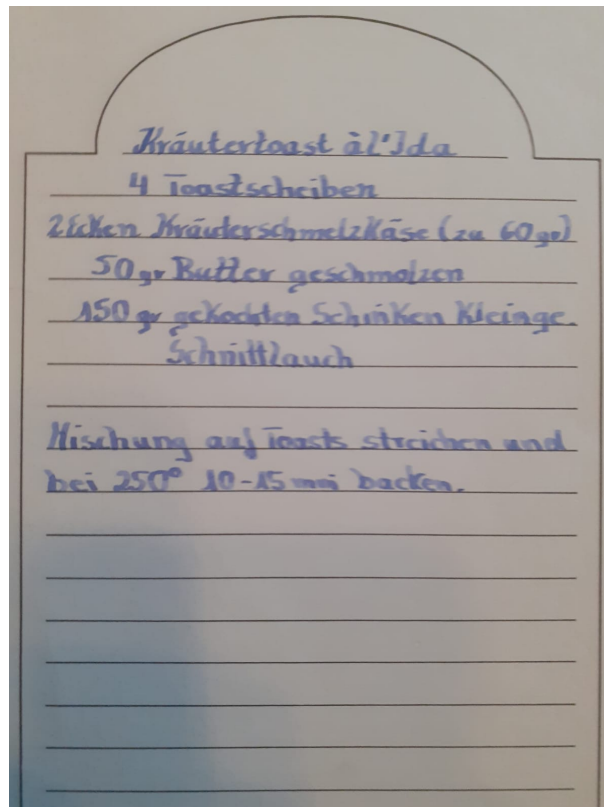 Kräutertoast àl'Ida
4 Toastscheiben
2 Ecken Kräuderschmelzkäse (zu 60 gr)
50 gr Butter geschmolzen
150 gr gekochten Schinken kleinge.
Schnittlauch
Mischung auf Toasts streichen und
bei 250° 10-15 min backen.